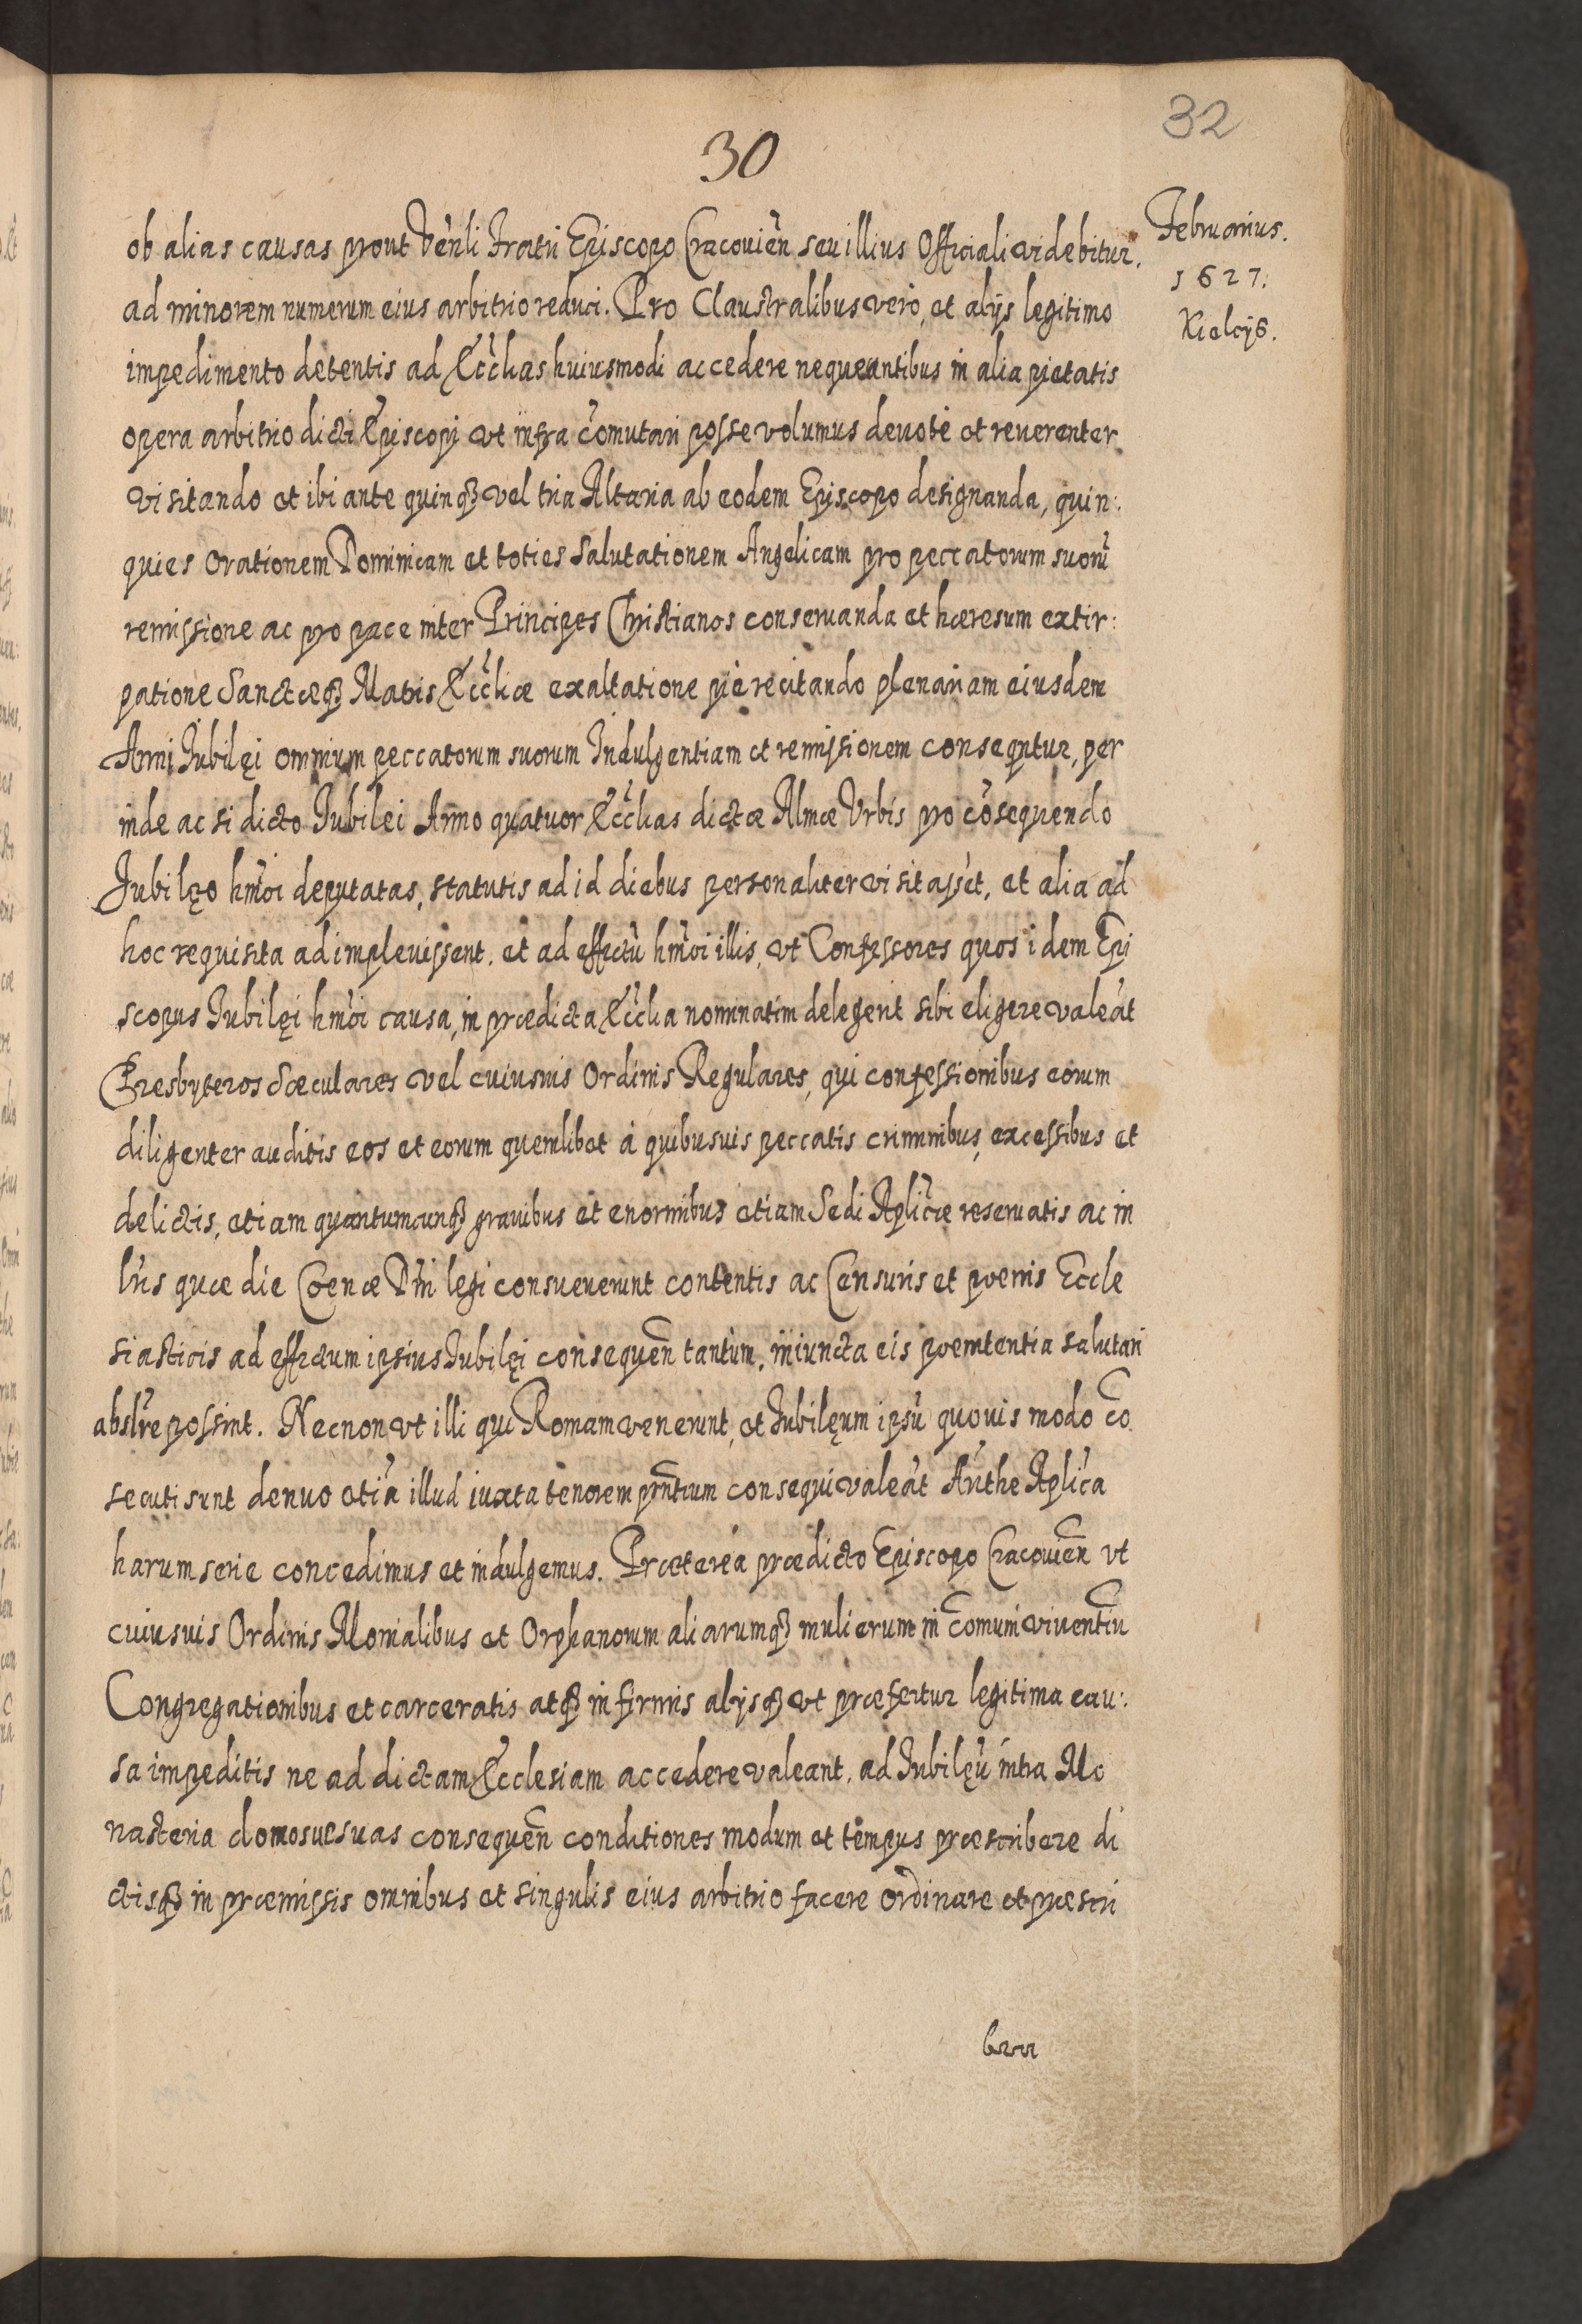 32
30
Februarius.
1627.
Kielcijs.
ob alias causas prout Ven̄li Fratri Episcopo Cracouien̄ seu illius Officiali videbitur.
ad minorem numerum eius arbitrio reduci. Pro Claustralibus verò, et alijs legitimo
impedimento detentis ad Eccl̄ias huiusmodi accedere nequeantibus in alia pietatis
opera arbitrio dicti Episcopi vt infra com̄utari posse volumus deuotè et reuerenter
visitando et ibi ante quinqȝ vel tria Altaria ab eodem Episcopo designanda, quin:
quies Orationem Dominicam et toties Salutationem Angelicam pro peccatorum suorū
remissione ac pro pace inter Principes Christianos conseruanda et hæresum extir:
patione Sanctæqȝ Matris Eccl̄iæ exaltatione piè recitando plenariam eiusdem
Anni Iubilęi omnium peccatorum suorum Indulgentiam et remissionem conseqntur, per
inde ac si dicto Iubilei Anno quatuor Eccl̄ias dictæ Almæ Vrbis pro cōsequendo
Iubilęo hm̄oi deputatas, statutis ad id diebus personaliter visitassēt, et alia ad
hoc requisita adimpleuissent. et ad effectū hm̄oi illis, vt Confessores quos idem Epi
scopus Iubilęi hm̄oi causa, in prædicta Eccl̄ia nominatim delegerit sibi eligere valeāt
Presbyteros Sæculares vel cuiusuis Ordinis Regulares, qui confessionibus eorum
diligenter auditis eos et eorum quemlibet à quibusuis peccatis criminibus, excessibus et
delictis, etiam quantumcunqȝ grauibus et enormibus etiam Sedi Apl̄icæ reseruatis ac in
lr̄is quæ die Cœnæ Dn̄i legi consueuerunt contentis ac Censuris et pœnis Eccle
siasticis ad effectum ipsius Iubilęi consequen̄ tantùm, iniuncta eis pœnitentia salutari
absl̄re possint. Necnon vt illi qui Romam venerunt, et Iubilęum ipsū quouis modo cō
secuti sunt denuo etiā illud iuxta tenorem pn̄tium consequi valeāt Aūthe Apl̄ica
harum serie concedimus et indulgemus. Prætereà prædicto Episcopo Cracouien̄ vt
cuiusuis Ordinis Monialibus et Orphanorum aliarumqȝ mulierum in com̄uni viuentiū
Congregationibus et carceratis atqȝ infirmis alijsqȝ vt præfertur legitima cau:
sa impeditis ne ad dictam Ecclesiam accedere valeant, ad Iubilęū intra Mo
nasteria domosue suas consequen̄ conditiones modum et tempus præscribere di
ctisqȝ in præmissis omnibus et singulis eius arbitrio facere ordinare et præscri